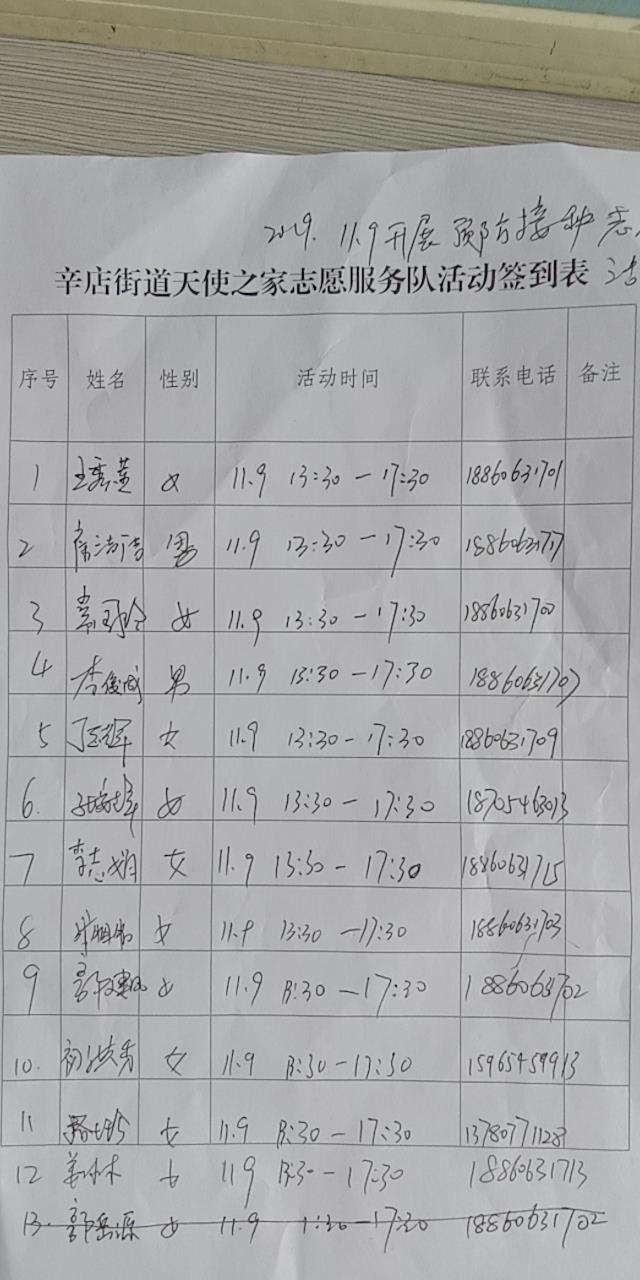 2019. 11.9开展预防接种志
辛店街道天使之家志愿服务队活动签到表 活
序号 姓名 性别 活动时间 联系电话 备注
1 王秀英 女 11.9 13:30—17:30 18860631701
2 男 11.9 13:30—17:30 18860631717
3 女 11.9 13:30—17:30 18860631700
4 李俊成 男 11.9 13:30—17:30 18860631707
5 女 11.9 13:30—17:30 18860631709
6. 女 11.9 13:30—17:30 18705463013
7 李志娟 女 11.9 13:30—17:30 18860631715
8 女 11.9 13:30—17:30 18860631703
9 女 11.9 13:30—17:30 18860631702
10. 初洪秀 女 11.9 13:30—17:30 15965459913
11 女 11.9 13:30—17:30 13780771128
12 姜林林 女 11.9 13:30—17:30 18860631713
13. 郭岳源 女 11.9 1:30—17:30 18860631702